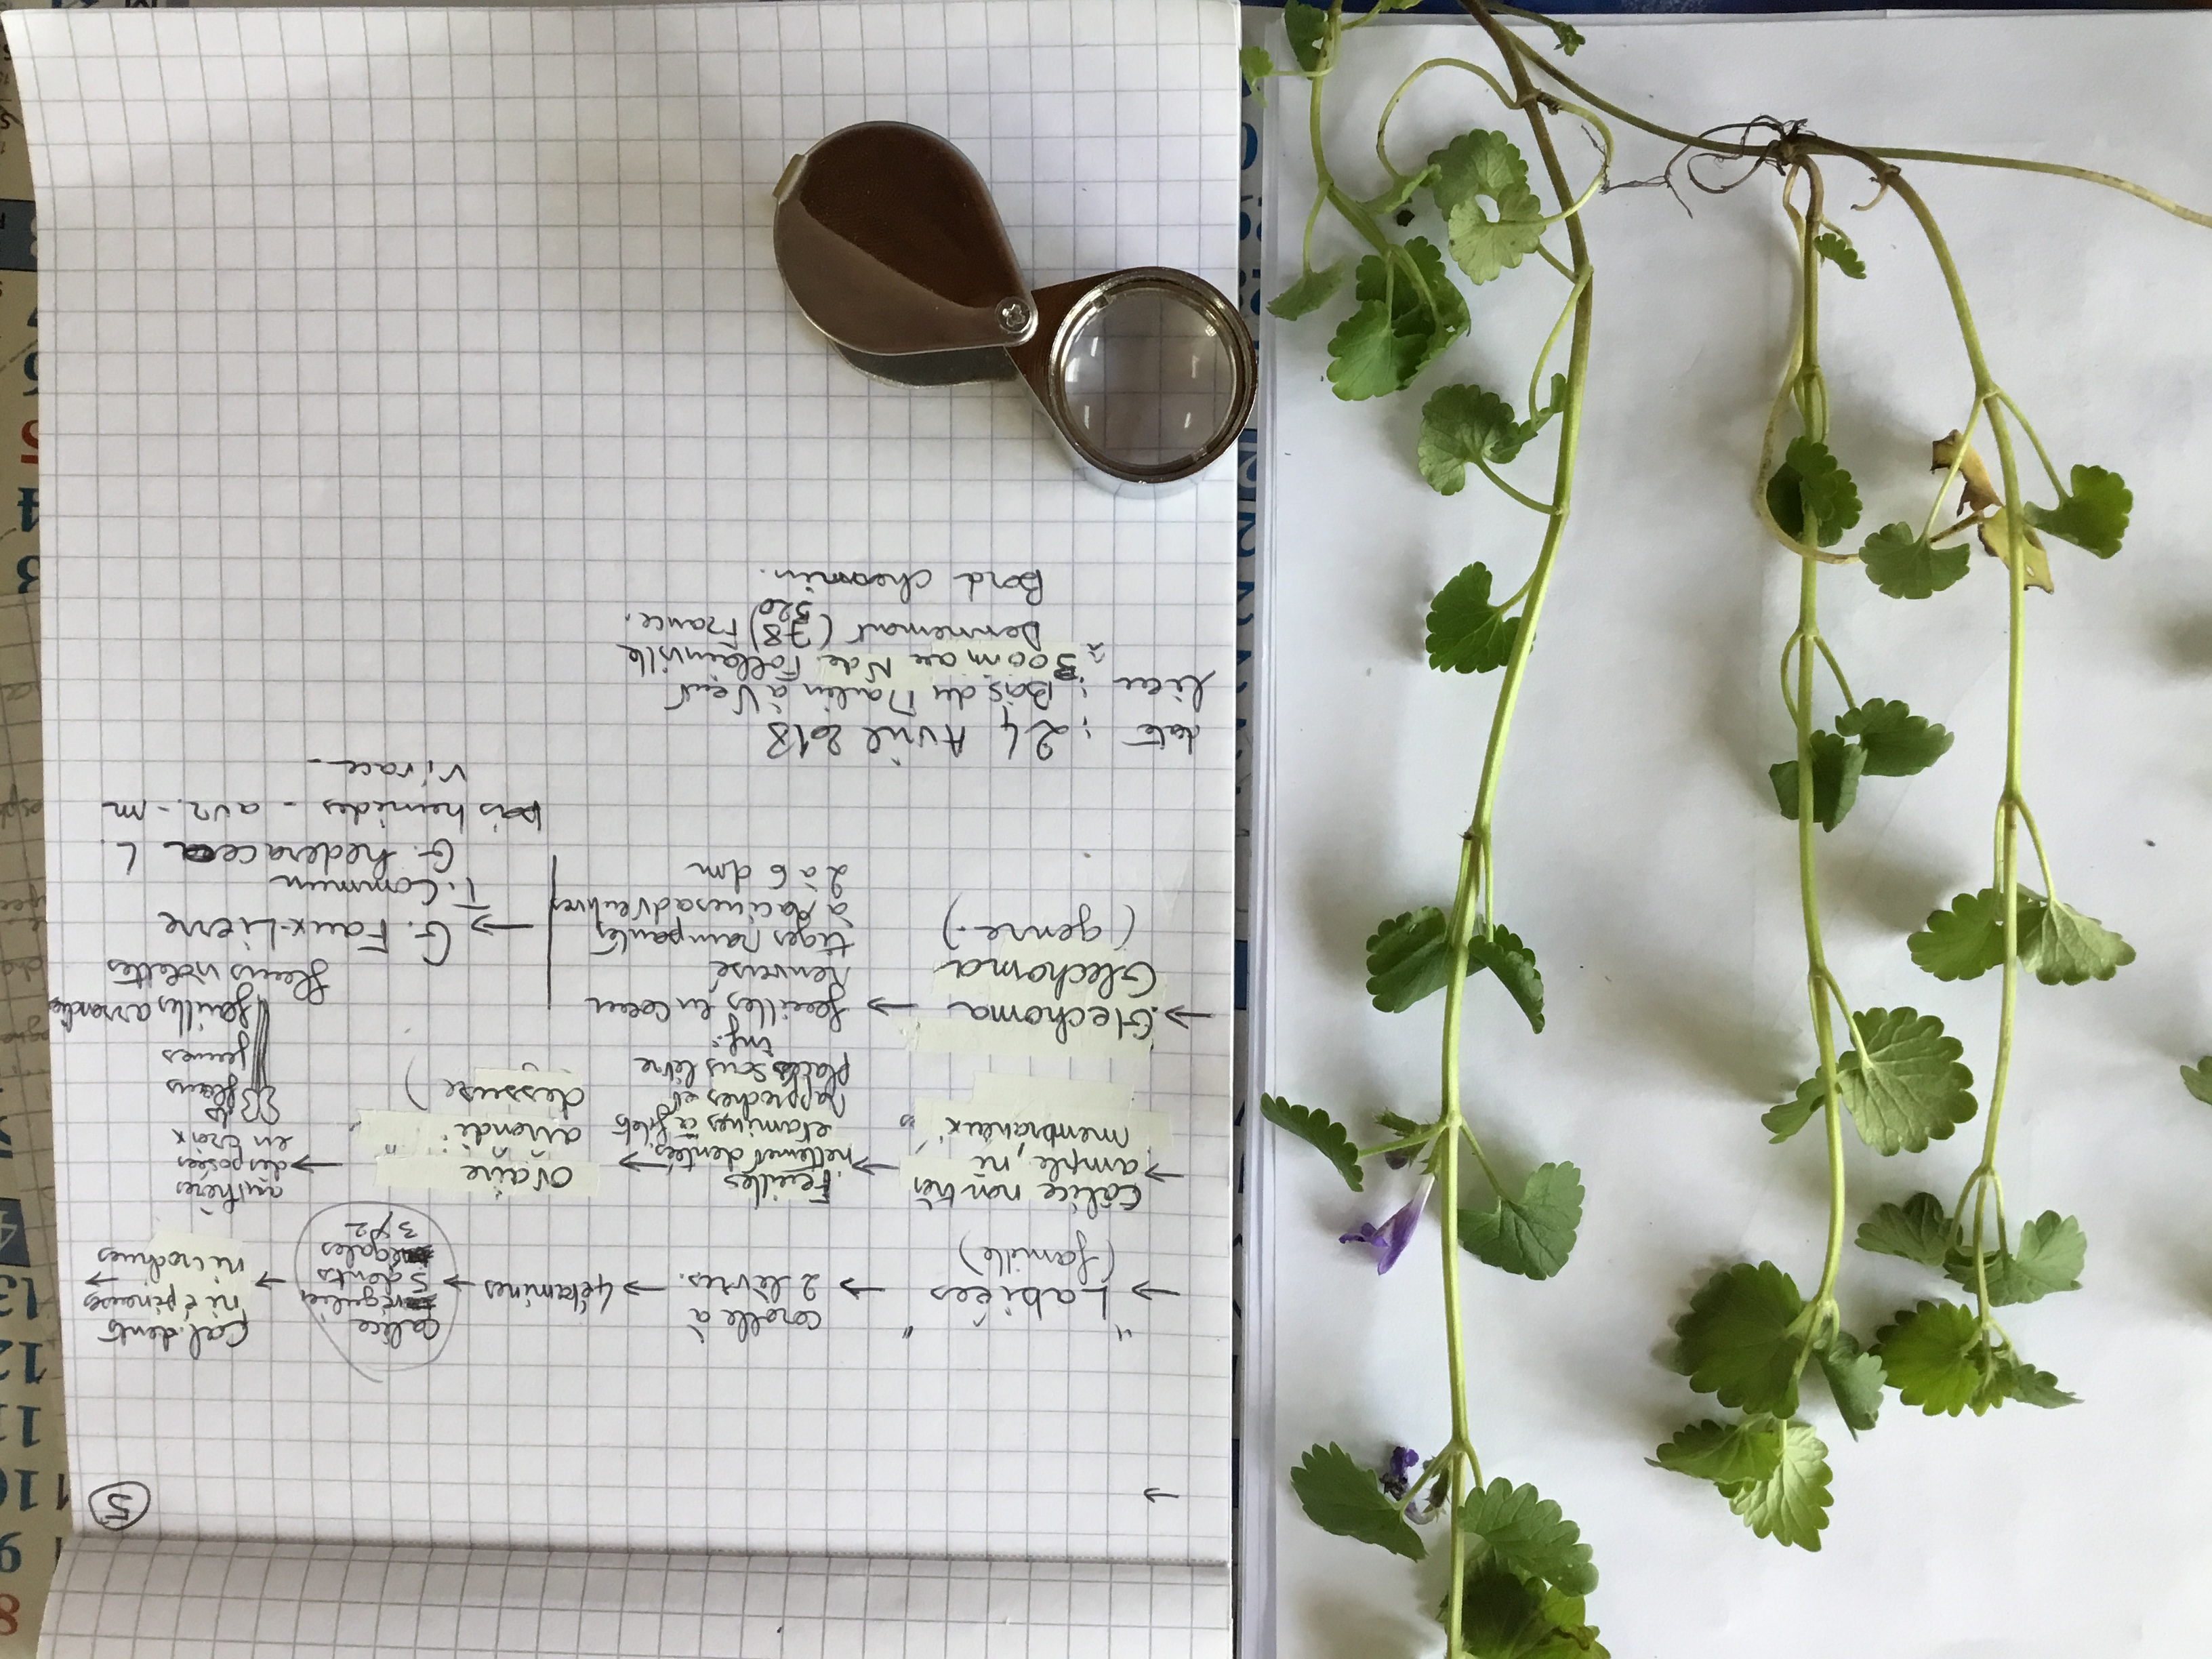 5
→
→ "Labiées" → corolle à → 4 étamines → calice → Cal. dents →
(famille) 2 lèvres. 5 dents ni épineuses
égales ni crochues
3/2
→ Calice non très → Feuilles → ovaire → anthères
ample, ni nettement dentées " arrondi " disposées
"membraneux" étamines à filets dessus) en croix
rapprochés et fleurs
placés sous lèvre jaunes
inf.
→ Glechoma → feuilles en coeur feuilles arrondies
Glechoma renversé fleurs violettes
(genre.) tiges rampantes → G. Faux-Lierre
à racines adventives T. Commun
2 à 6 dm G. hederacea L.
bois humides - avr. - m
Vivace -
date : 24 Avril 2018
lieu : Bois du Moulin à Vent
≈ 300m au N de Follainville
Dennemont (78520) France.
Bord chemin.
8
9
10
11
12
13
3
4
5
6